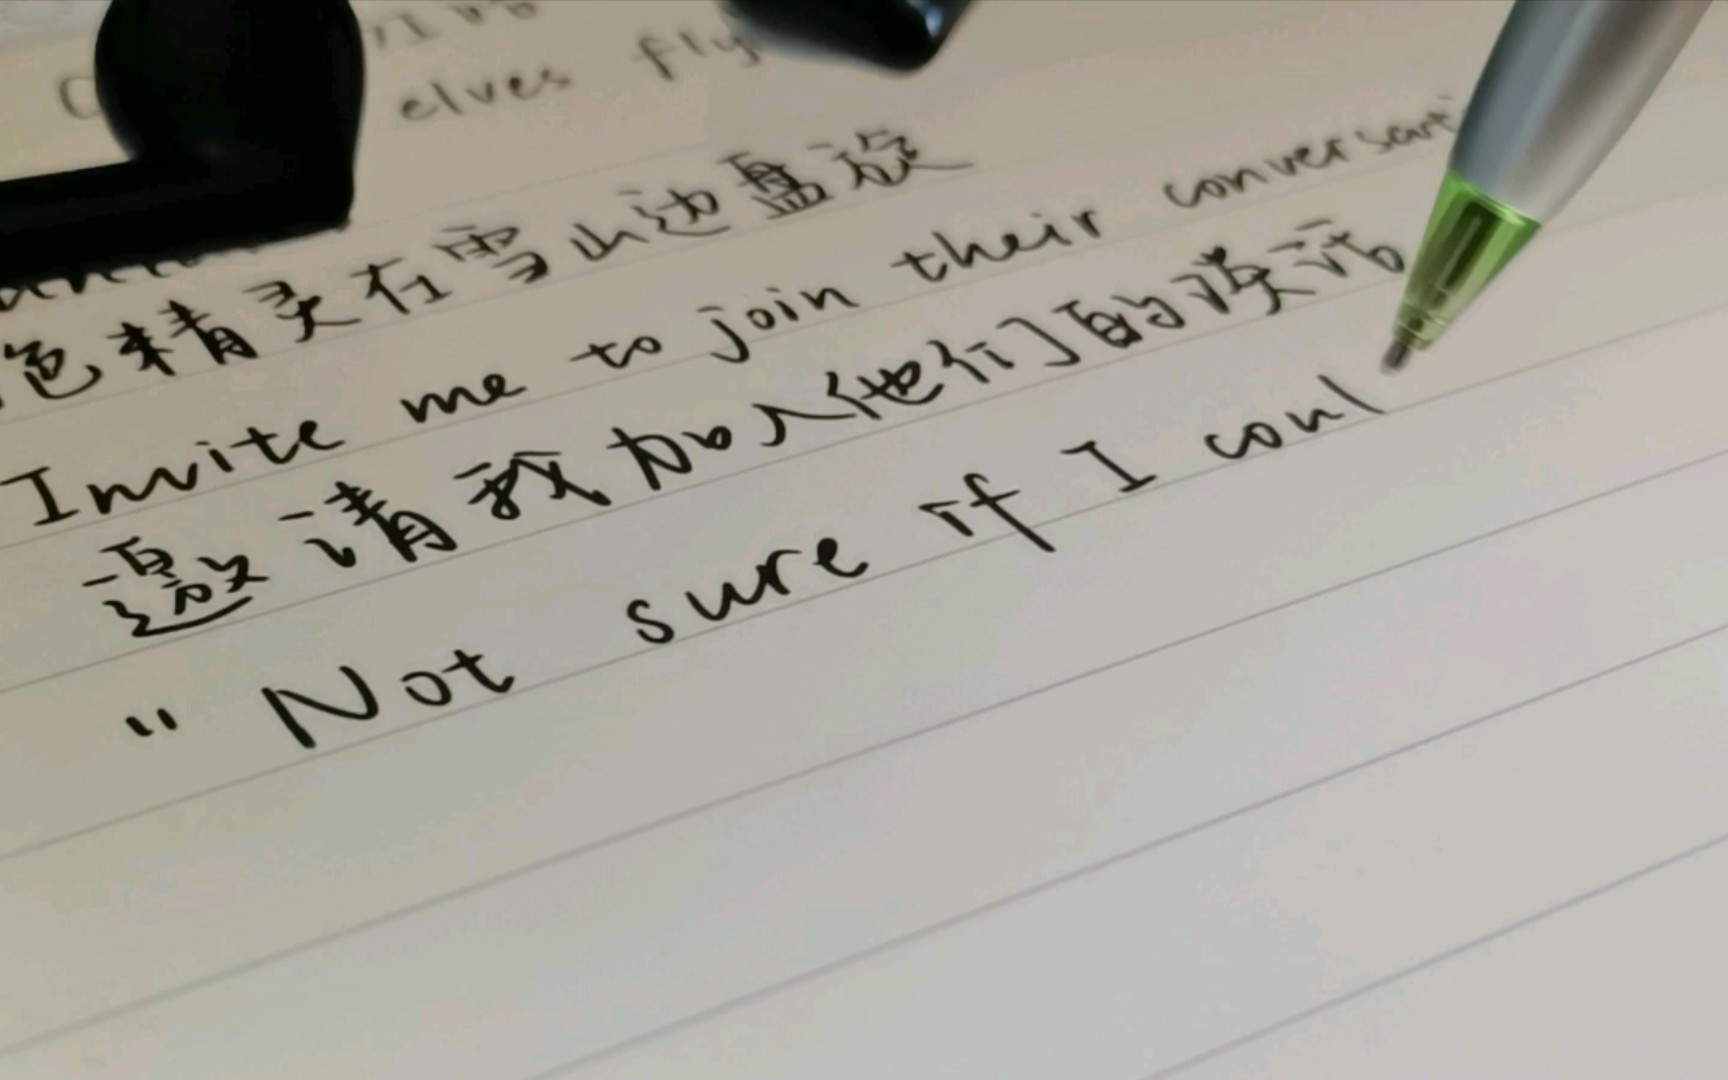 elves fly
色精灵在雪山边盘旋
Invite me to join their conversati
邀请我加入他们的谈话
" Not sure if I coul